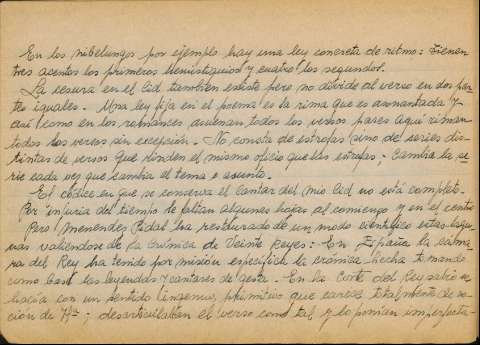 En los nibelungos por ejemplo hay una ley concreta de ritmo: tienen
tres acentos los primeros hemistiquios y cuatro los segundos.
La cesura en el Cid también existe pero no divide al verso en dos par-
tes iguales. Una ley fija en el poema es la rima que es asonantada y
así como en los romances asuenan todos los versos pares aquí riman
todos los versos sin excepción. No consta de estrofas sino de series dis-
tintas de versos que rinden el mismo oficio que las estrofas; cambia la se-
rie cada vez que cambia el tema o asunto.
El códice en que se conserva el Cantar del mio Cid no está completo.
Por injuria del tiempo le faltan algunas hojas al comienzo y en el centro
Pero Menendez Pidal ha restaurado de un modo científico estas lagu-
nas valiéndose de la Crónica de Veinte Reyes: En España la cáma-
ra del Rey ha tenido por misión específica la crónica hecha tomando
como base las leyendas y cantares de gesta. En la Corte del Rey sabio se
hacía con un sentido ingenuo, primitivo que carece totalmente de no-
ción de Hª; desarticulaban el verso como tal y lo ponían imperfecta-